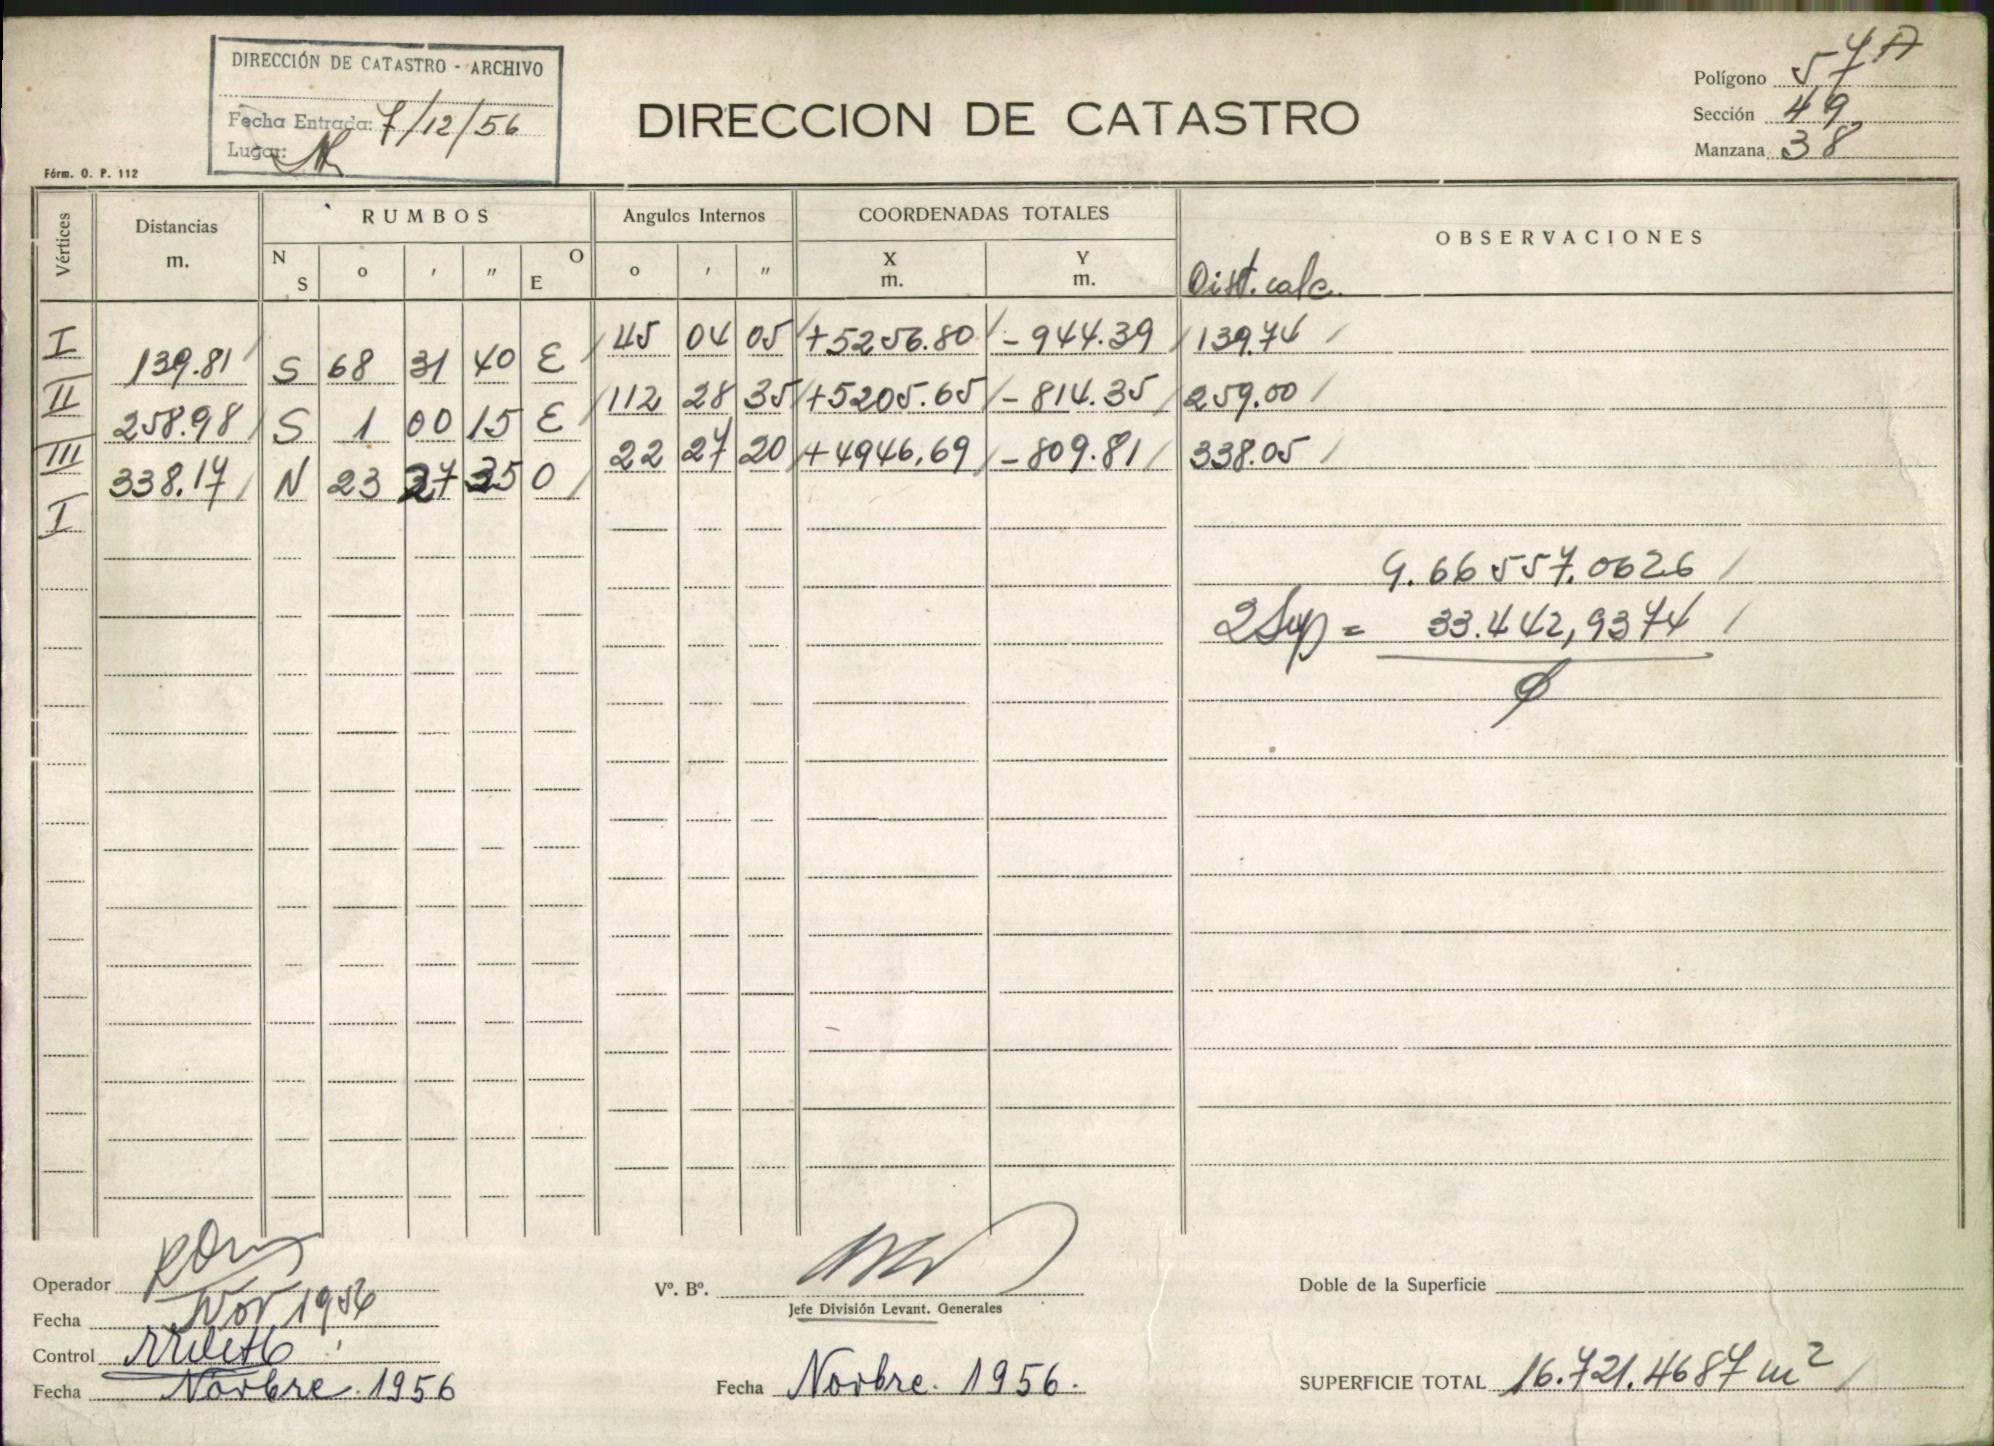 DIRECCIÓN DE CATASTRO - ARCHIVO
Fecha Entrada: 7/12/56
Lugar:
DIRECCION DE CATASTRO
Polígono 57A
Sección 49
Manzana 38
Fórm. O. P. 112
Vértices Distancias m. RUMBOS N S o ' " O E Angulos Internos o ' " COORDENADAS TOTALES X m. Y m. OBSERVACIONES
Dist. calc.
I 45 04 05 +5256.80 -944.39 139.74
139.81 S 68 31 40 E
II 112 28 35 +5205.65 -814.35 259.00
258.98 S 1 00 15 E
III 22 27 20 +4946.69 -809.81 338.05
338.17 N 23 27 35 O
I
9.66557.0626
2Sup = 33.442,9374
Operador
Fecha Nov 1956
Control
Fecha Novbre. 1956
Vº. Bº.
Jefe División Levant. Generales
Fecha Novbre. 1956.
Doble de la Superficie
SUPERFICIE TOTAL 16.721.4687 m²